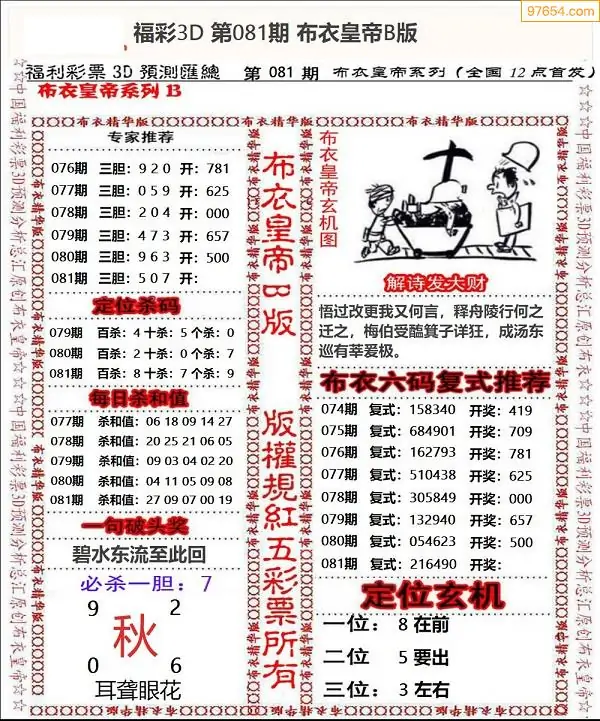 97654.com
福彩3D 第081期 布衣皇帝B版
福利彩票3D預測匯總 第081期 布衣皇帝系列(全国12点首发)
布衣皇帝系列B
布衣精华版 布衣精华版 布衣精华版 布衣精华版
☆☆中国福利彩票3D预测分析总汇原创布衣皇帝☆☆
专家推荐
076期 三胆: 9 2 0 开: 781
077期 三胆: 0 5 9 开: 625
078期 三胆: 2 0 4 开: 000
079期 三胆: 4 7 3 开: 657
080期 三胆: 9 6 3 开: 500
081期 三胆: 5 0 7 开:
定位杀码
079期 百杀: 4 十杀: 5 个杀: 0
080期 百杀: 2 十杀: 0 个杀: 7
081期 百杀: 8 十杀: 7 个杀: 9
每日杀和值
077期 杀和值: 06 18 09 14 27
078期 杀和值: 20 25 21 06 05
079期 杀和值: 09 03 04 02 20
080期 杀和值: 04 11 05 09 08
081期 杀和值: 27 09 07 00 19
一句破头奖
碧水东流至此回
必杀一胆: 7
9 2
秋
0 6
耳聋眼花
布衣皇帝B版
版權規紅五彩票所有
布衣皇帝玄机图
解诗发大财
悟过改更我又何言，释舟陵行何之
迁之，梅伯受醢箕子详狂，成汤东
巡有莘爰极。
布衣六码复式推荐
074期 复式: 158340 开奖: 419
075期 复式: 684901 开奖: 709
076期 复式: 162793 开奖: 781
077期 复式: 510438 开奖: 625
078期 复式: 305849 开奖: 000
079期 复式: 132940 开奖: 657
080期 复式: 054623 开奖: 500
081期 复式: 216490 开奖:
定位玄机
一位: 8 在前
二位 5 要出
三位: 3 左右
☆☆☆中国福利彩票3D预测分析总汇原创布衣皇帝☆☆☆